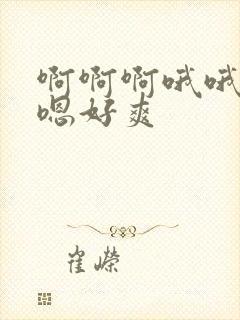 啊啊啊哦哦
嗯好爽
崔嵘